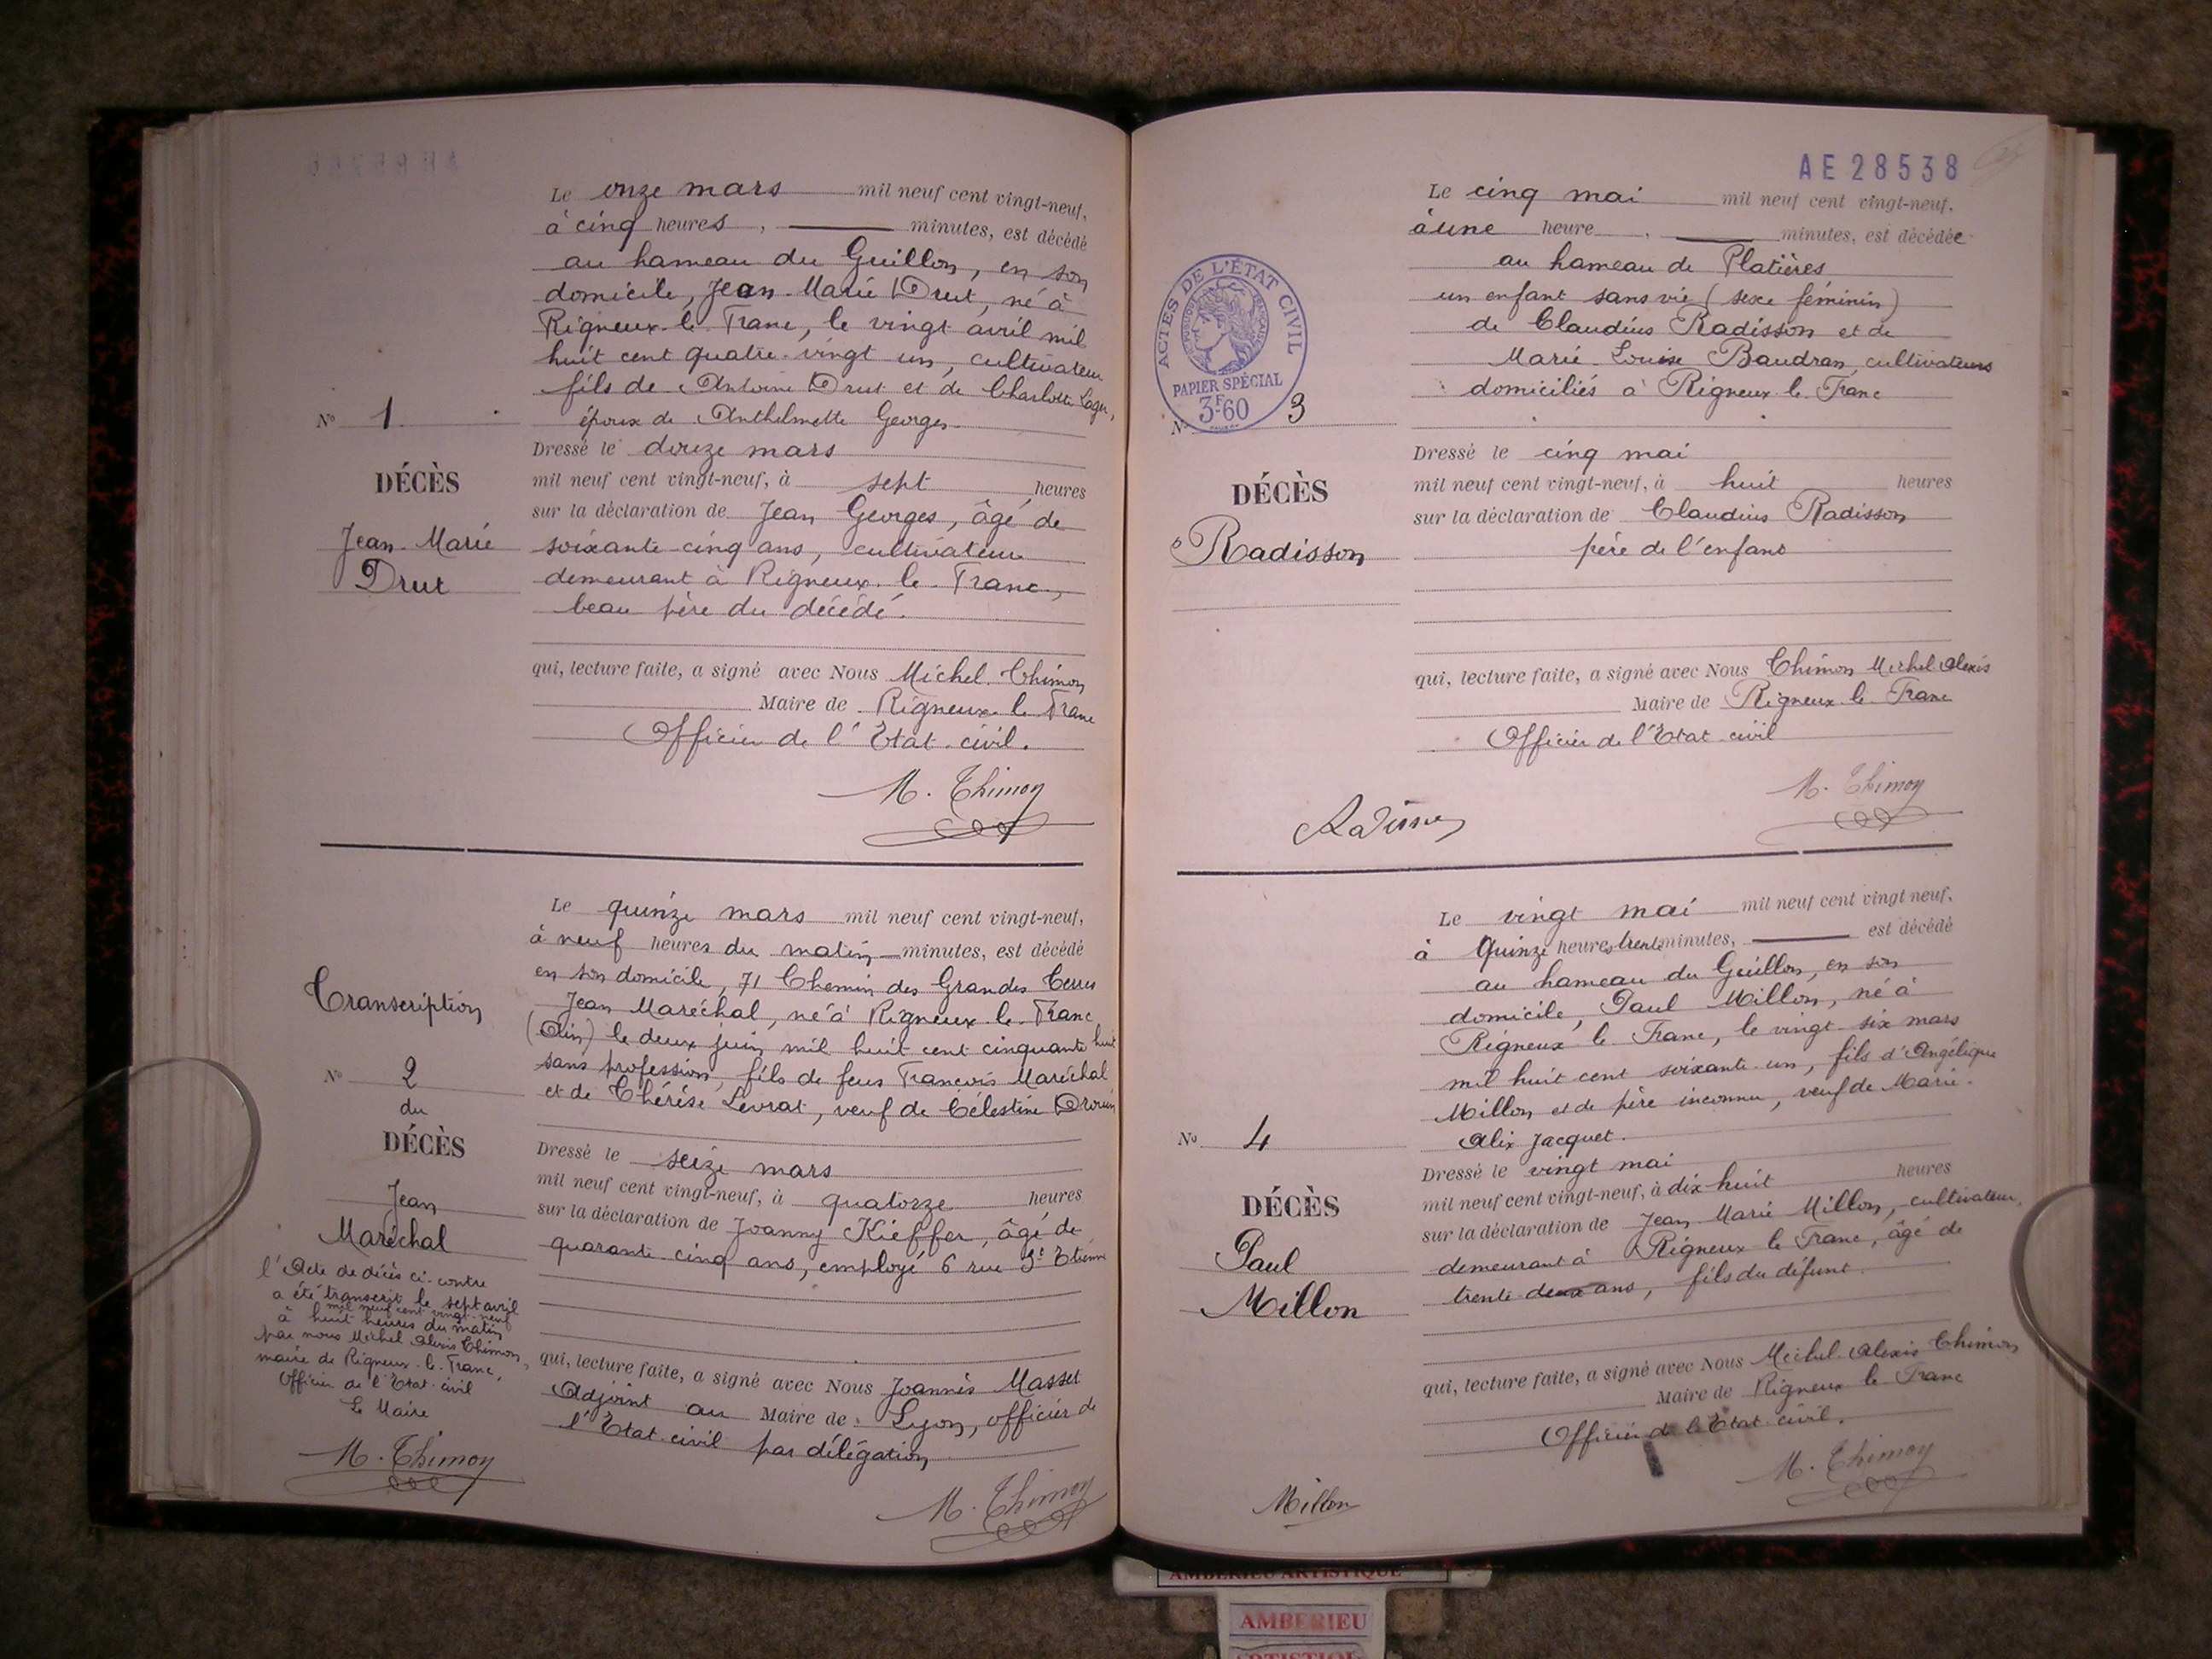 Le onze mars mil neuf cent vingt-neuf,
à cinq heures, minutes, est décédé
au hameau du Guillon, en son
domicile, Jean-Marie Drut, né à
Rigneux-le-Franc, le vingt avril mil
huit cent quatre-vingt un, cultivateur
fils de Antoine Drut et de Charlotte
époux de Anthelmette Georges.
N° 1
DÉCÈS
Jean-Marie
Drut
Dressé le douze mars
mil neuf cent vingt-neuf, à sept heures
sur la déclaration de Jean Georges, âgé de
soixante-cinq ans, cultivateur
demeurant à Rigneux-le-Franc,
beau père du décédé.
qui, lecture faite, a signé avec Nous Michel Thimon
Maire de Rigneux-le-Franc
Officier de l'Etat-civil.
M. Thimon
Transcription
N° 2
du
DÉCÈS
Jean
Maréchal
l'Acte de décès ci-contre
a été transcrit le sept avril
mil neuf cent vingt-neuf
à huit heures du matin
par nous Michel Alexis Thimon,
maire de Rigneux-le-Franc,
Officier de l'Etat-civil
Le Maire
M. Thimon
Le quinze mars mil neuf cent vingt-neuf,
à neuf heures du matin minutes, est décédé
en son domicile, 71 Chemin des Grandes Terres
Jean Maréchal, né à Rigneux-le-Franc
(Ain) le deux juin mil huit cent cinquante huit
sans profession, fils de feus François Maréchal
et de Thérèse Levrat, veuf de Célestine Drouin
Dressé le seize mars
mil neuf cent vingt-neuf, à quatorze heures
sur la déclaration de Joanny Kieffer, âgé de
quarante cinq ans, employé 6 rue St Etienne
qui, lecture faite, a signé avec Nous Joannès Masset
Adjoint au Maire de Lyon, officier de
l'Etat-civil par délégation
M. Thimon
AE 28538
ACTES DE L'ÉTAT CIVIL
RÉPUBLIQUE FRANÇAISE
PAPIER SPÉCIAL
3F60
N° 3
DÉCÈS
Radisson
Le cinq mai mil neuf cent vingt-neuf,
à une heure, minutes, est décédée
au hameau de Platières
un enfant sans vie (sexe féminin)
de Claudius Radisson et de
Marie-Louise Baudran, cultivateurs
domiciliés à Rigneux-le-Franc
Dressé le cinq mai
mil neuf cent vingt-neuf, à huit heures
sur la déclaration de Claudius Radisson
père de l'enfant
qui, lecture faite, a signé avec Nous Thimon Michel Alexis
Maire de Rigneux-le-Franc
Officier de l'Etat-civil
M. Thimon
Radisson
N° 4
DÉCÈS
Paul
Millon
Le vingt mai mil neuf cent vingt neuf,
à quinze heures trente minutes, est décédé
au hameau du Guillon, en son
domicile, Paul Millon, né à
Rigneux-le-Franc, le vingt-six mars
mil huit cent soixante-un, fils d'Angélique
Millon et de père inconnu, veuf de Marie-
Alix Jacquet.
Dressé le vingt mai
mil neuf cent vingt-neuf, à dix huit heures
sur la déclaration de Jean Marie Millon, cultivateur,
demeurant à Rigneux le Franc, âgé de
trente deux ans, fils du défunt.
qui, lecture faite, a signé avec Nous Michel-Alexis Thimon
Maire de Rigneux le Franc
Officier de l'Etat-civil.
M. Thimon
Millon
AMBERIEU ARTISTIQUE
AMBERIEU
ARTISTIQUE